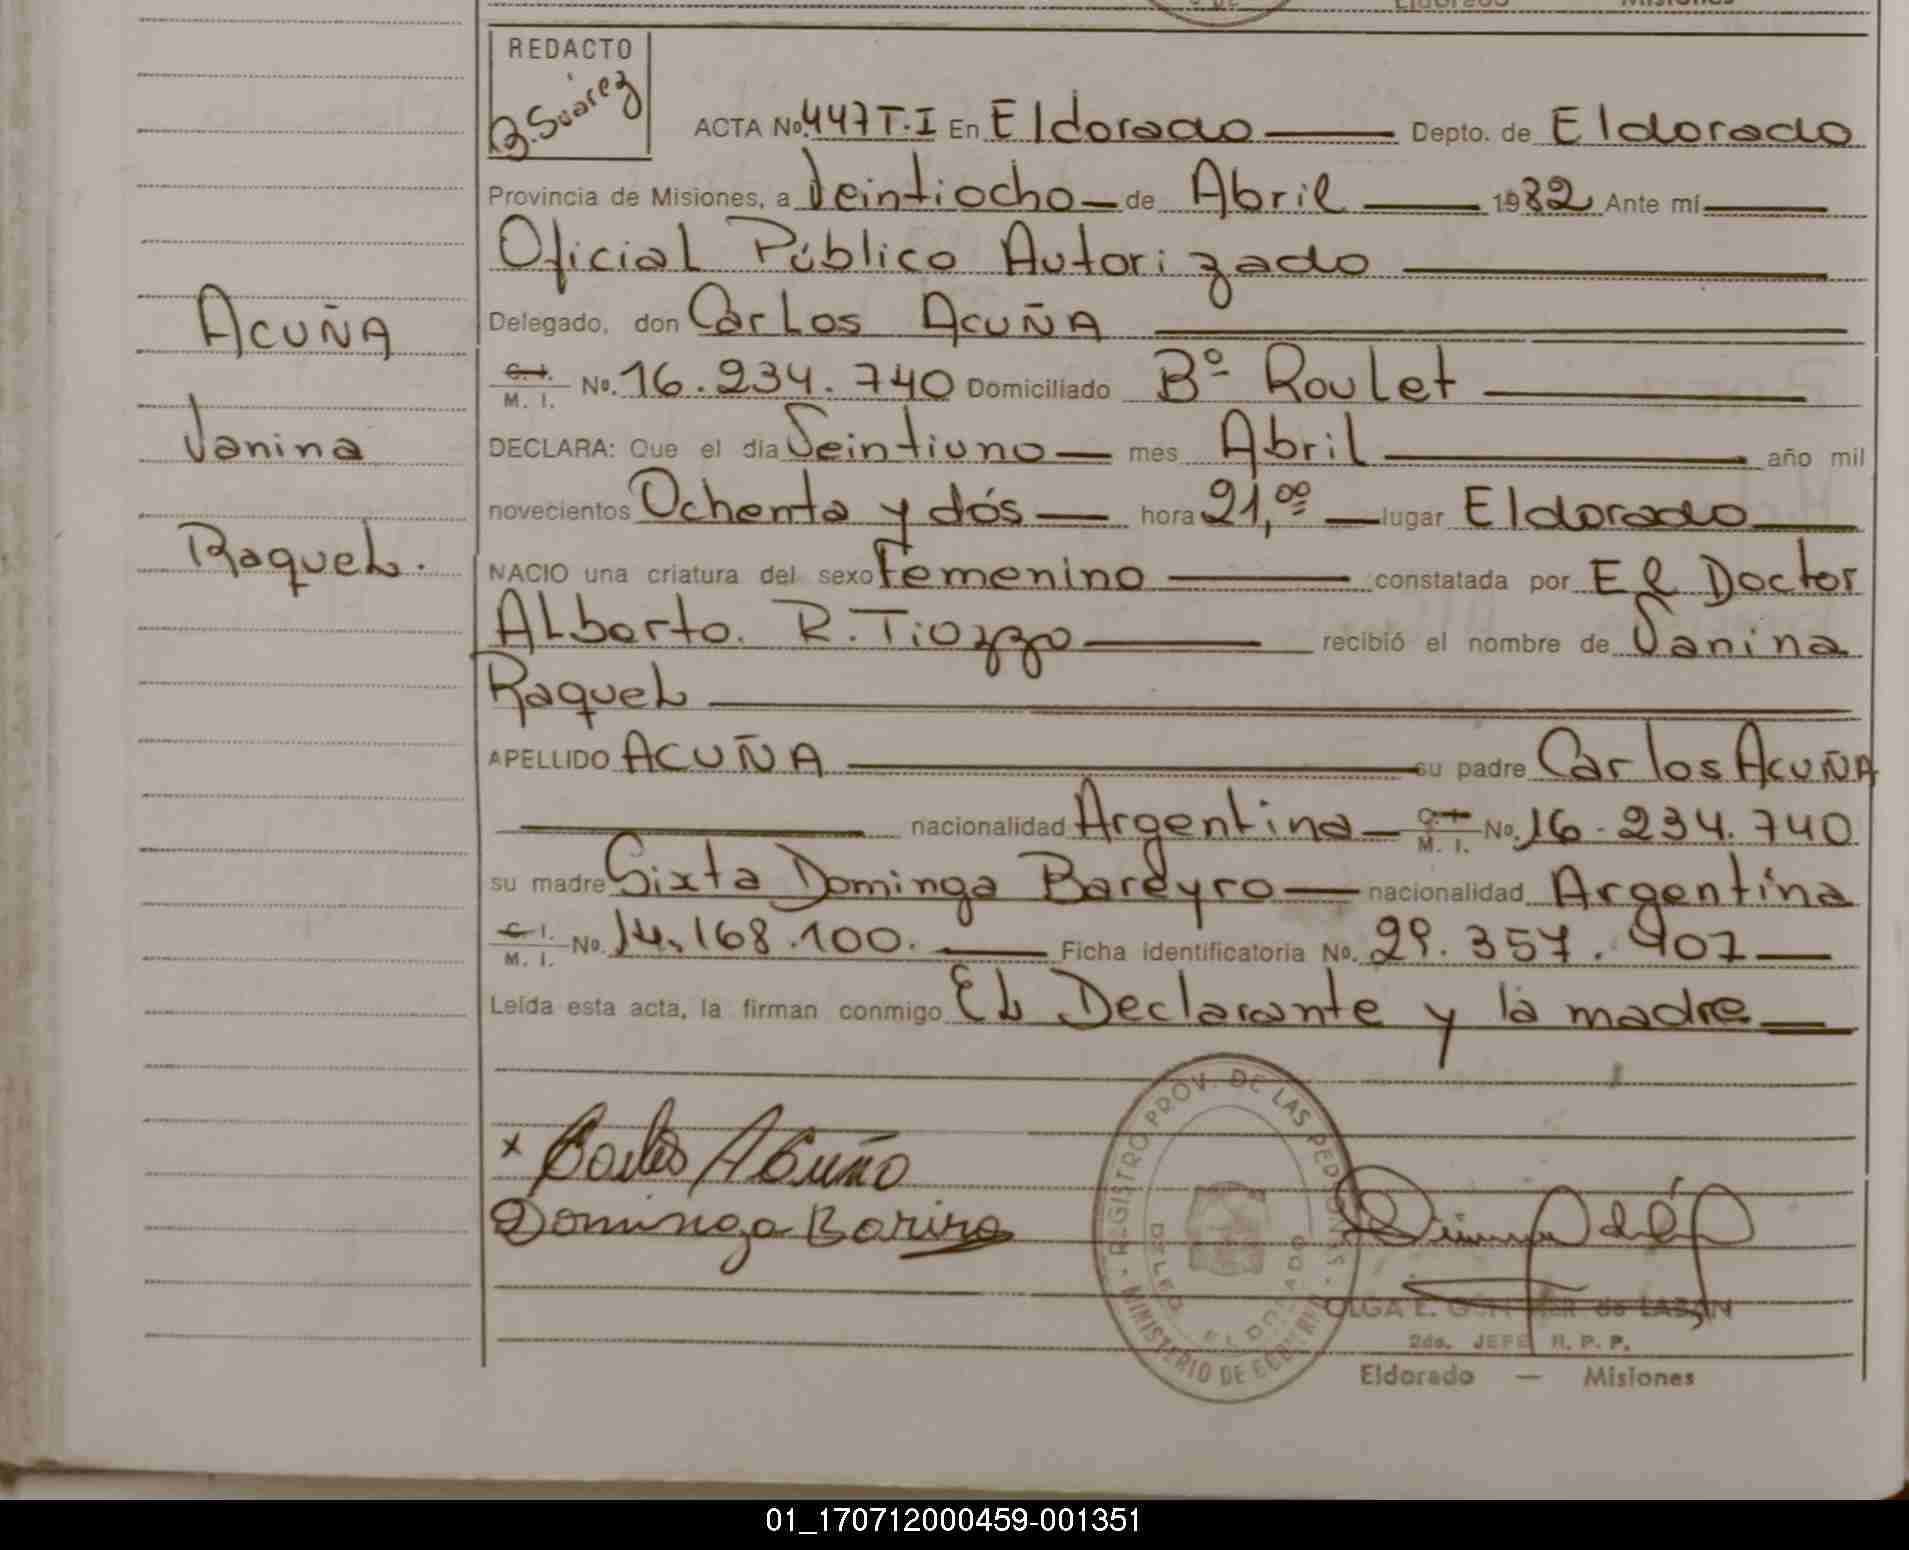 REDACTO
Suárez
ACTA No. 447 T.I En Eldorado Depto. de Eldorado
Provincia de Misiones, a Veintiocho de Abril 1982 Ante mí
Oficial Público Autorizado
Delegado, don Carlos ACUÑA
C. I. M. I. No. 16.234.740 Domiciliado Bº Roulet
DECLARA: Que el día Veintiuno mes Abril año mil
novecientos Ochenta y dós hora 21,ºº lugar Eldorado
NACIO una criatura del sexo Femenino constatada por El Doctor
Alberto. R. Tiozzo recibió el nombre de Vanina
Raquel
APELLIDO ACUÑA su padre Carlos ACUÑA
nacionalidad Argentina C. I. M. I. No. 16.234.740
su madre Sixta Dominga Bareyro nacionalidad Argentina
C. I. M. I. No. 14.168.100. Ficha identificatoria No. 29.357.907
Leída esta acta, la firman conmigo El Declarante y la madre
ACUÑA
Vanina
Raquel.
x Carlos Acuña
Dominga Bariro
REGISTRO PROV. DE LAS PERSONAS
MINISTERIO DE GOBIERNO
DELEG. ELDORADO
OLGA E. de LABAN
2do. JEFE R. P. P.
Eldorado — Misiones
01_170712000459-001351